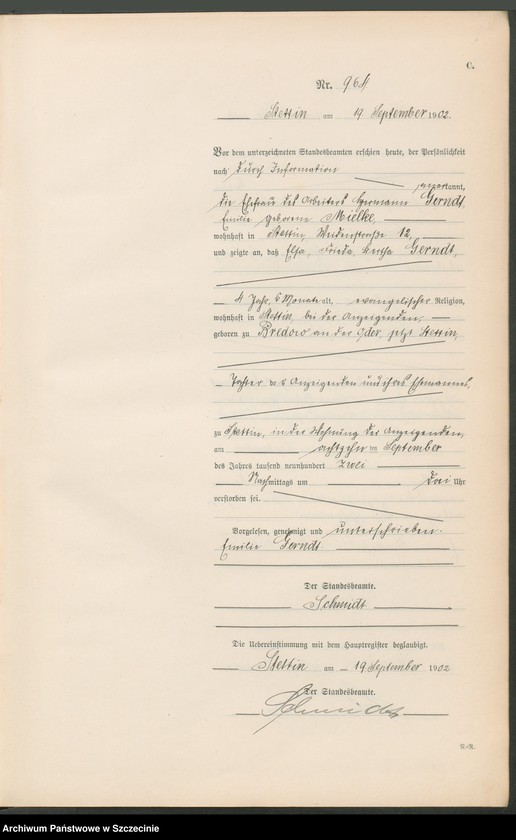 C.
Nr. 964
Stettin am 19 September 1902.
Vor dem unterzeichneten Standesbeamten erschien heute, der Persönlichkeit
nach durch Information
anerkannt,
die Ehefrau des Arbeiters Hermann Gerndt,
Emilie geborene Mielke
wohnhaft in Stettin, Weidenstraße 12,
und zeigte an, daß Elsa, Frieda, Hertha Gerndt,
4 Jahr, 6 Monate alt, evangelischer Religion,
wohnhaft in Stettin, bei der Anzeigenden,
geboren zu Bredow an der Oder, jetzt Stettin,
Tochter der Anzeigenden und ihres Ehemannes,
zu Stettin, in der Wohnung der Anzeigenden,
am achtzehn ten September
des Jahres tausend neunhundert zwei
Nachmittags um drei Uhr
verstorben sei.
Vorgelesen, genehmigt und unterschrieben.
Emilie Gerndt
Der Standesbeamte.
Schmidt
Die Uebereinstimmung mit dem Hauptregister beglaubigt.
Stettin am 19 September 1902
Der Standesbeamte.
Schmidt
N.-R.
Archiwum Państwowe w Szczecinie